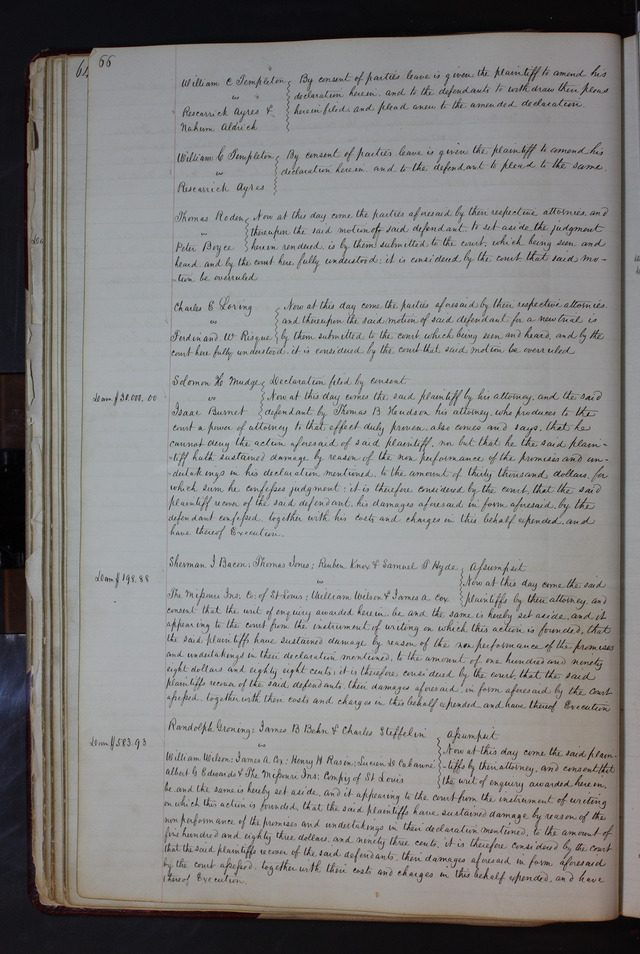 66
William C Templeton By consent of parties leave is given the plaintiff to amend his
vs declaration herein. and to the defendants to withdraw their pleas
Rescarrick Ayres & herein filed and plead anew to the amended declaration.
Nahum Aldrich
William C Templeton By consent of parties leave is given the plaintiff to amend his
vs declaration herein. and to the defendant to plead to the same.
Rescarrick Ayres
Thomas Roden Now at this day come the parties aforesaid by their respective attornies. and
vs thereupon the said motion of said defendant. to set aside the judgment
Peter Boyce herein rendered. is by them submitted to the court. which being seen and
heard. and by the court here fully understood: it is considered by the court that said mo-
tion be overruled
Charles E Loring Now at this day come the parties aforesaid by their respective attornies.
vs and thereupon the said motion of said defendant for a new trial is
Ferdinand W Risque by them submitted to the court which being seen and heard, and by the
court here fully understood. it is considered by the court that said motion be overruled
Solomon H Mudge Declaration filed by consent
Dam $30.000.00 vs Now at this day comes the said plaintiff by his attorney, and the said
Isaac Burnet defendant by Thomas B Hudson his attorney, who produces to the
court a power of attorney to that effect duly proven. also comes and says, that he
cannot deny the action aforesaid of said plaintiff. nor but that he the said plain-
tiff hath sustained damage by reason of the non performance of the promises and un-
dertakings in his declaration mentioned. to the amount of thirty thousand dollars. for
which sum he confesses judgment: it is therefore considered by the court, that the said
plaintiff recover of the said defendant. his damages aforesaid in form aforesaid. by the
defendant confessed. together with his costs and charges in this behalf expended. and
have thereof Execution.
Sherman J Bacon: Thomas Jones: Reuben Knox & Samuel P Hyde Assumpsit
Dam $198.88 vs Now at this day come the said
The Missouri Ins: Co: of St Louis: William Wilson & James A Cox plaintiffs by their attorney, and
consent that the writ of enquiry awarded herein. be and the same is hereby set aside. and it
appearing to the court from the instrument of writing on which this action is founded, that
the said plaintiffs have sustained damage by reason of the non performance of the promises
and undertakings in their declaration mentioned. to the amount of one hundred and ninety
eight dollars and eighty eight cents: it is therefore considered by the court, that the said
plaintiffs recover of the said defendants. their damages aforesaid. in form aforesaid by the Court
assessed. together with their costs and charges in this behalf expended. and have thereof Execution
Randolph Groning: James B Behn & Charles Steffelin Assumpsit
Dam $583.93 vs Now at this day come the said plain-
William Wilson: James A Cox: Henry N Rasin: Lucien D Cabanne tiffs by their attorney, and consent that
Albert G Edwards & The Missouri Ins: Compy of St Louis the writ of enquiry awarded herein.
be and the same is hereby set aside. and it appearing to the court from the instrument of writing
on which this action is founded, that the said plaintiffs have sustained damage by reason of the
non performance of the promises and undertakings in their declaration mentioned. to the amount of
five hundred and eighty three dollars. and ninety three cents. it is therefore considered by the court
that the said plaintiffs recover of the said defendants. their damages aforesaid in form aforesaid
by the court assessed. together with their costs and charges in this behalf expended, and have
thereof Execution.